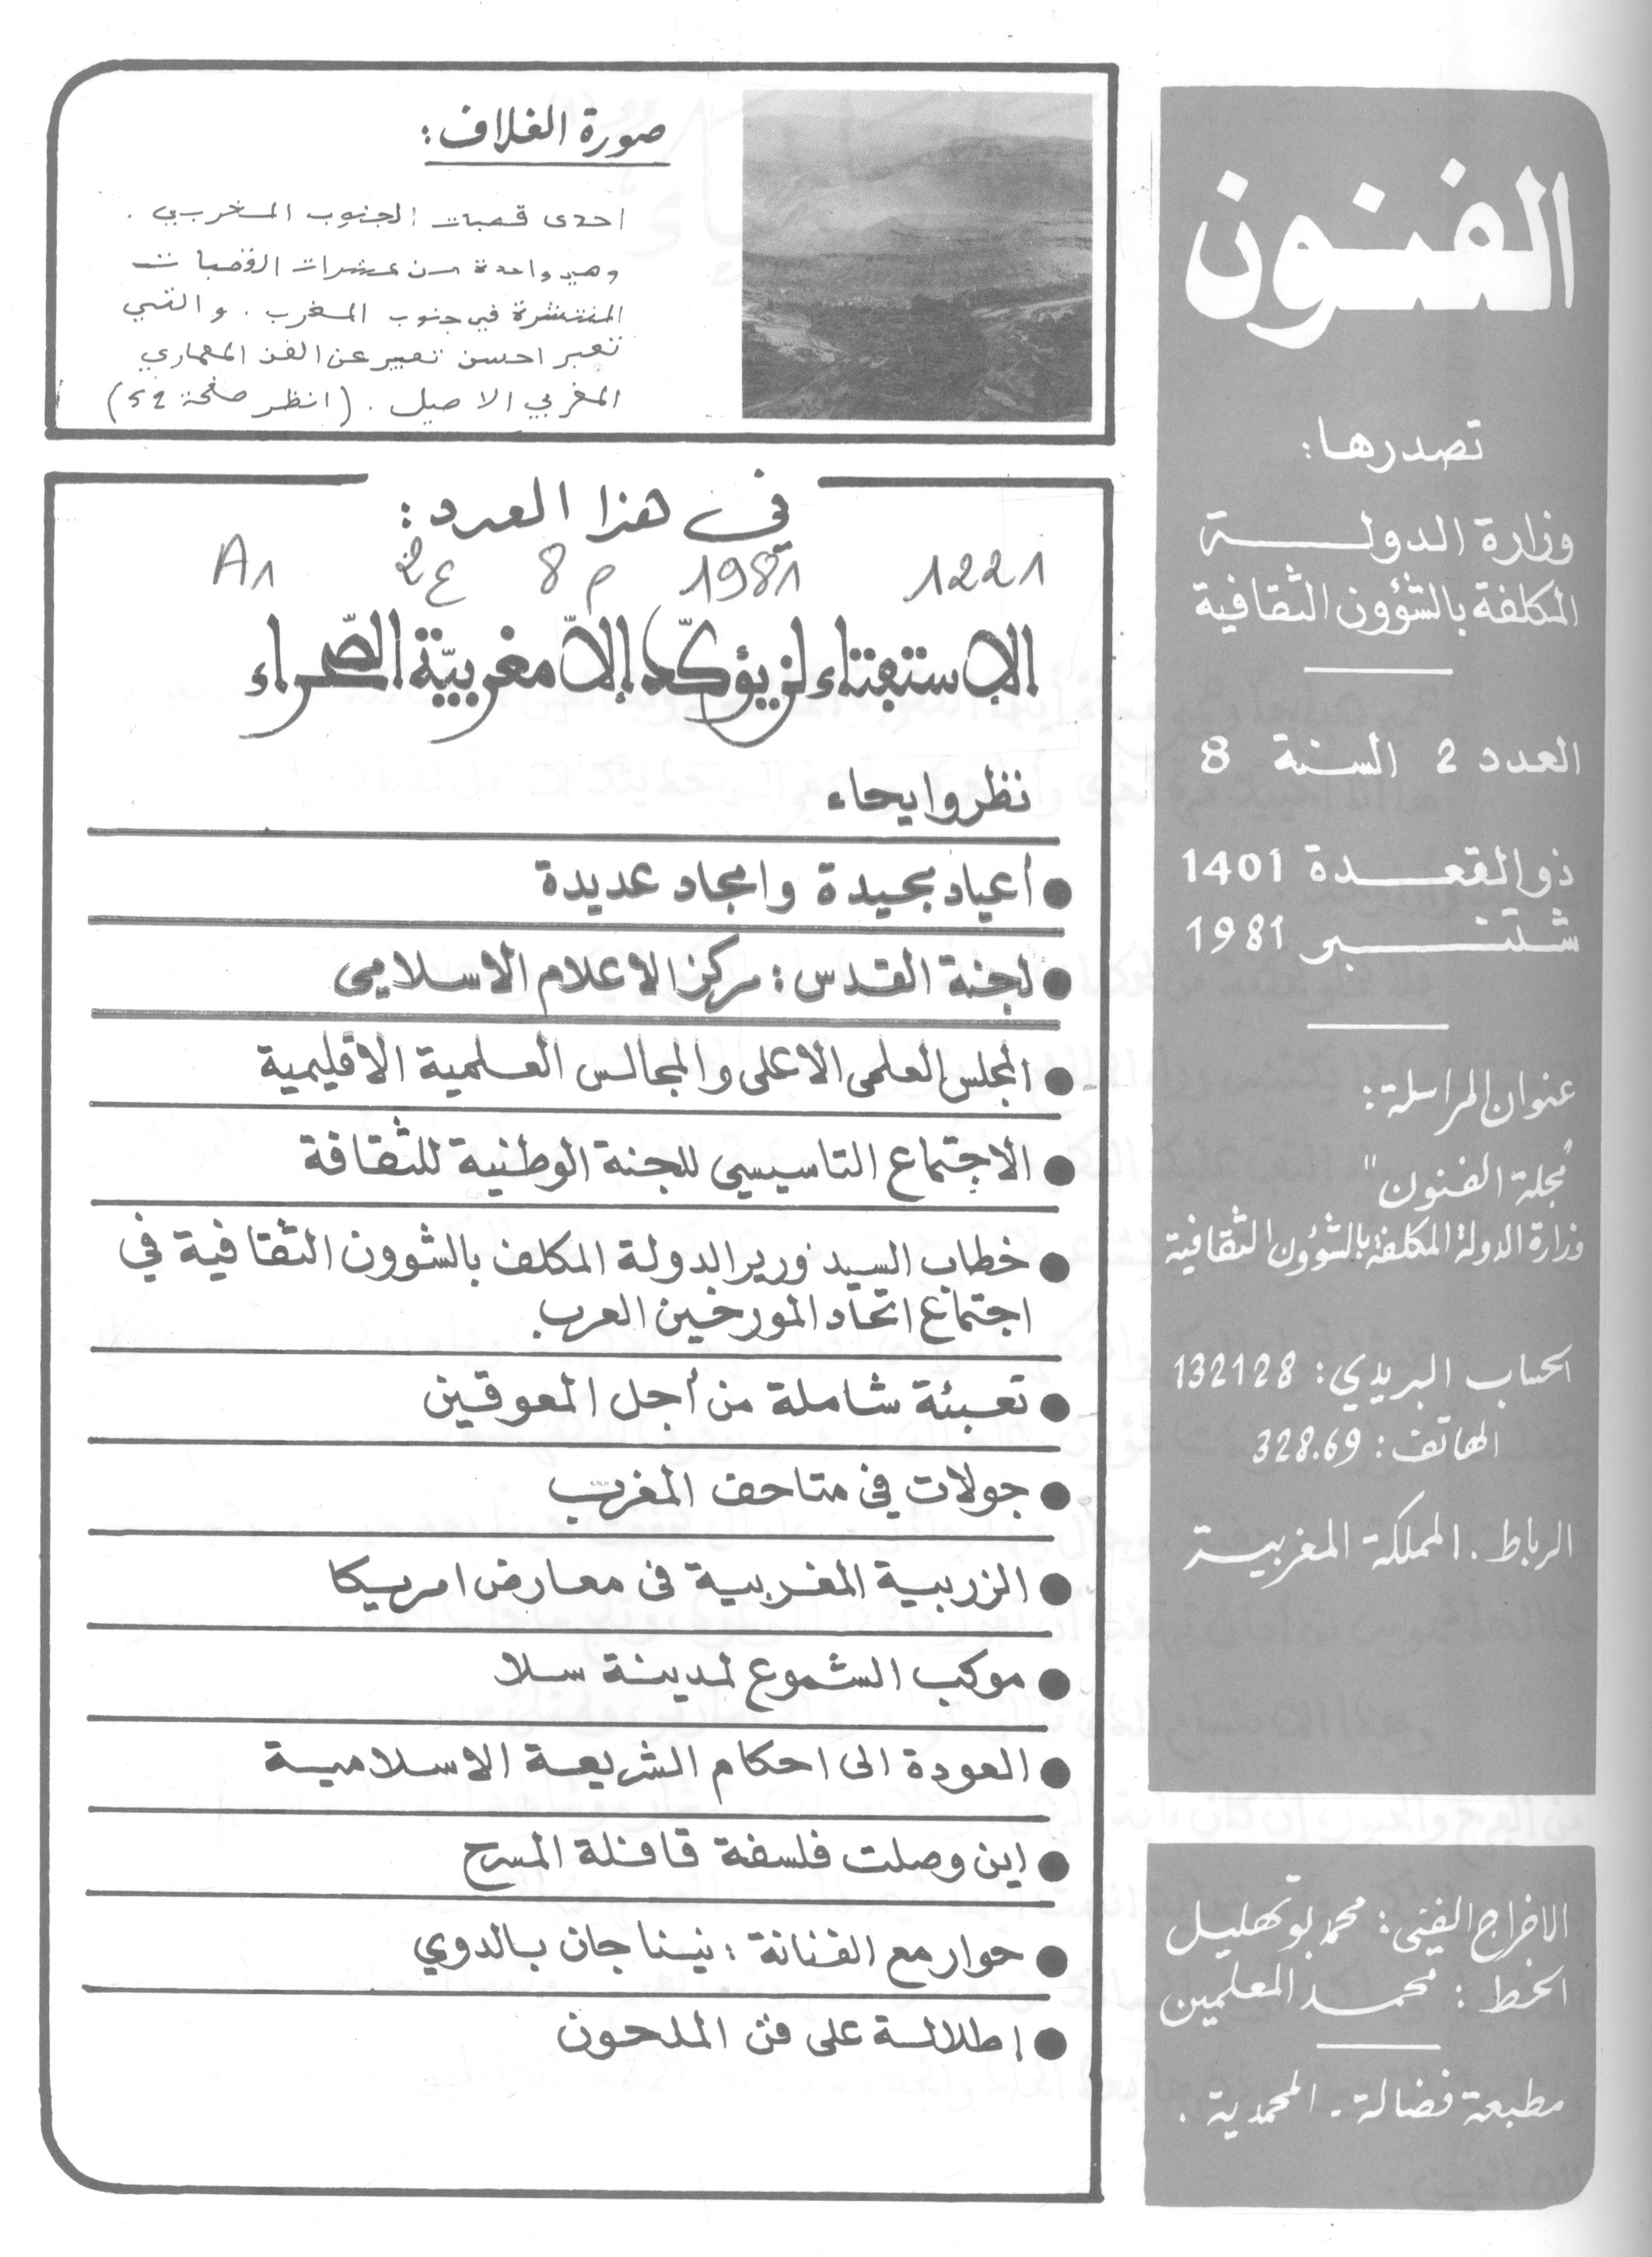 الفنون
تصدرها:
وزارة الدولة
المكلفة بالشؤون الثقافية
العدد 2 السنة 8
ذو القعدة 1401
شتنبر 1981
عنوان المراسلة:
مجلة الفنون"
وزارة الدولة المكلفة بالشؤون الثقافية
الحساب البريدي: 132128
الهاتف: 328.69
الرباط. المملكة المغربية
الاخراج الفني: محمد بوتهليل
الخط: محمد المعلمين
مطبعة فضالة. المحمدية.
صورة الغلاف:
احدى قصبات الجنوب المغربي.
وهي واحدة من عشرات القصبات
المنتشرة في جنوب المغرب. والتي
تعبر احسن تعبير عن الفن المعماري
المغربي الاصيل. (انظر صفحة 52)
في هذا العدد:
1221 1981 م 8 ع 2 A1
الاستفتاء لن يؤكد إلاّ مغربيّة الصّحراء
نظر وايحاء
● أعياد مجيدة وامجاد عديدة
● لجنة القدس: مركز الاعلام الاسلامي
● المجلس العلمي الاعلى والمجالس العلمية الاقليمية
● الاجتماع التاسيسي للجنة الوطنية للثقافة
● خطاب السيد وزير الدولة المكلف بالشوون الثقافية في
اجتماع اتحاد المورخين العرب
● تعبئة شاملة من أجل المعوقين
● جولات في متاحف المغرب
● الزربية المغربية في معارض امريكا
● موكب الشموع لمدينة سلا
● العودة الى احكام الشريعة الاسلامية
● اين وصلت فلسفة قافلة المسرح
● حوار مع الفنانة: نينا جان بالدوي
● اطلالة على فن الملحون